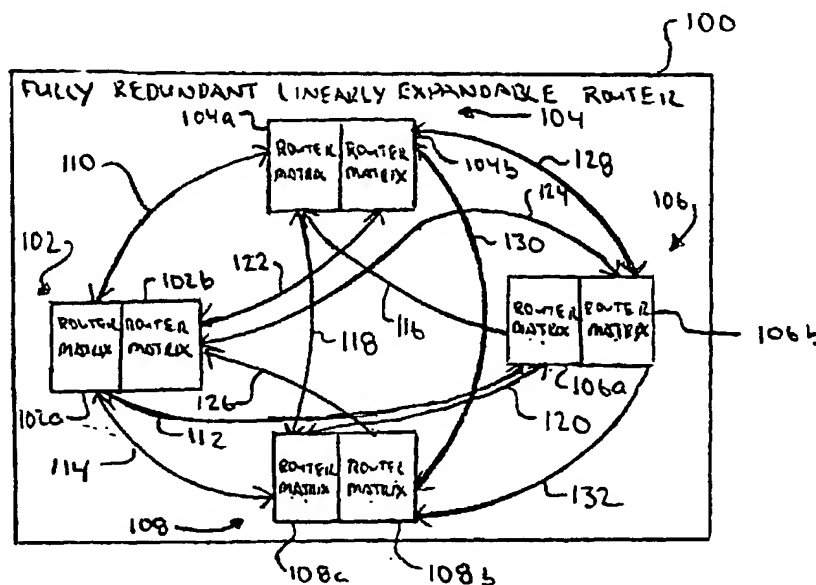 100
FULLY REDUNDANT LINEARLY EXPANDABLE ROUTER
104a
104
ROUTER MATRIX
ROUTER MATRIX
104b
128
110
124
106
102
102b
122
130
ROUTER MATRIX
ROUTER MATRIX
118
116
ROUTER MATRIX
ROUTER MATRIX
106b
126
106a
102a
112
120
114
ROUTER MATRIX
ROUTER MATRIX
132
108
108a
108b